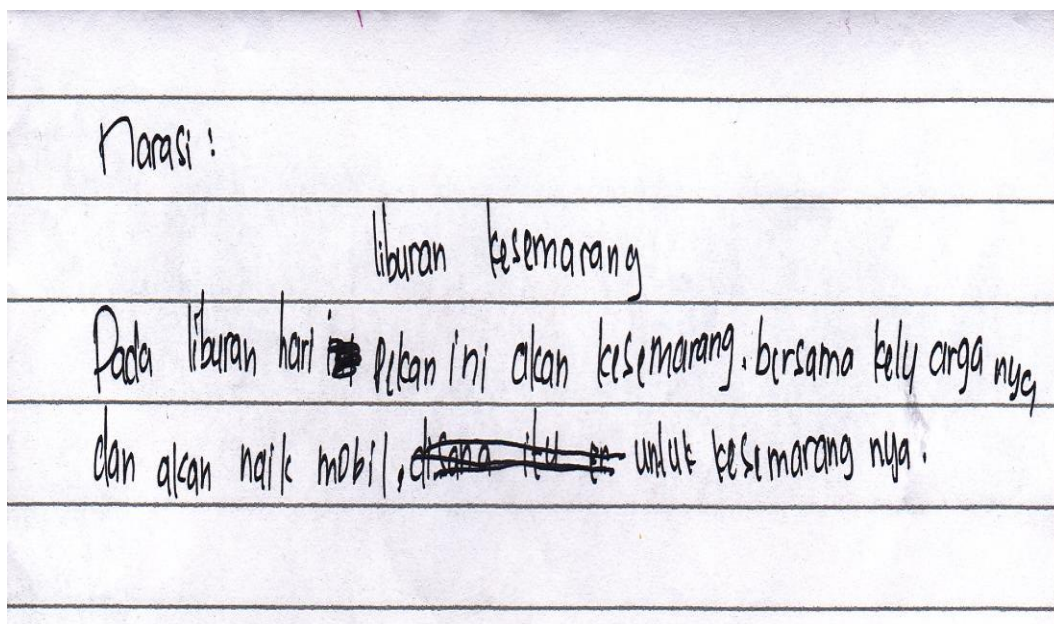 Narasi :
liburan kesemarang
Pada liburan hari pekan ini akan kesemarang. bersama keluarga nya
dan akan naik mobil, untuk kesemarang nya.